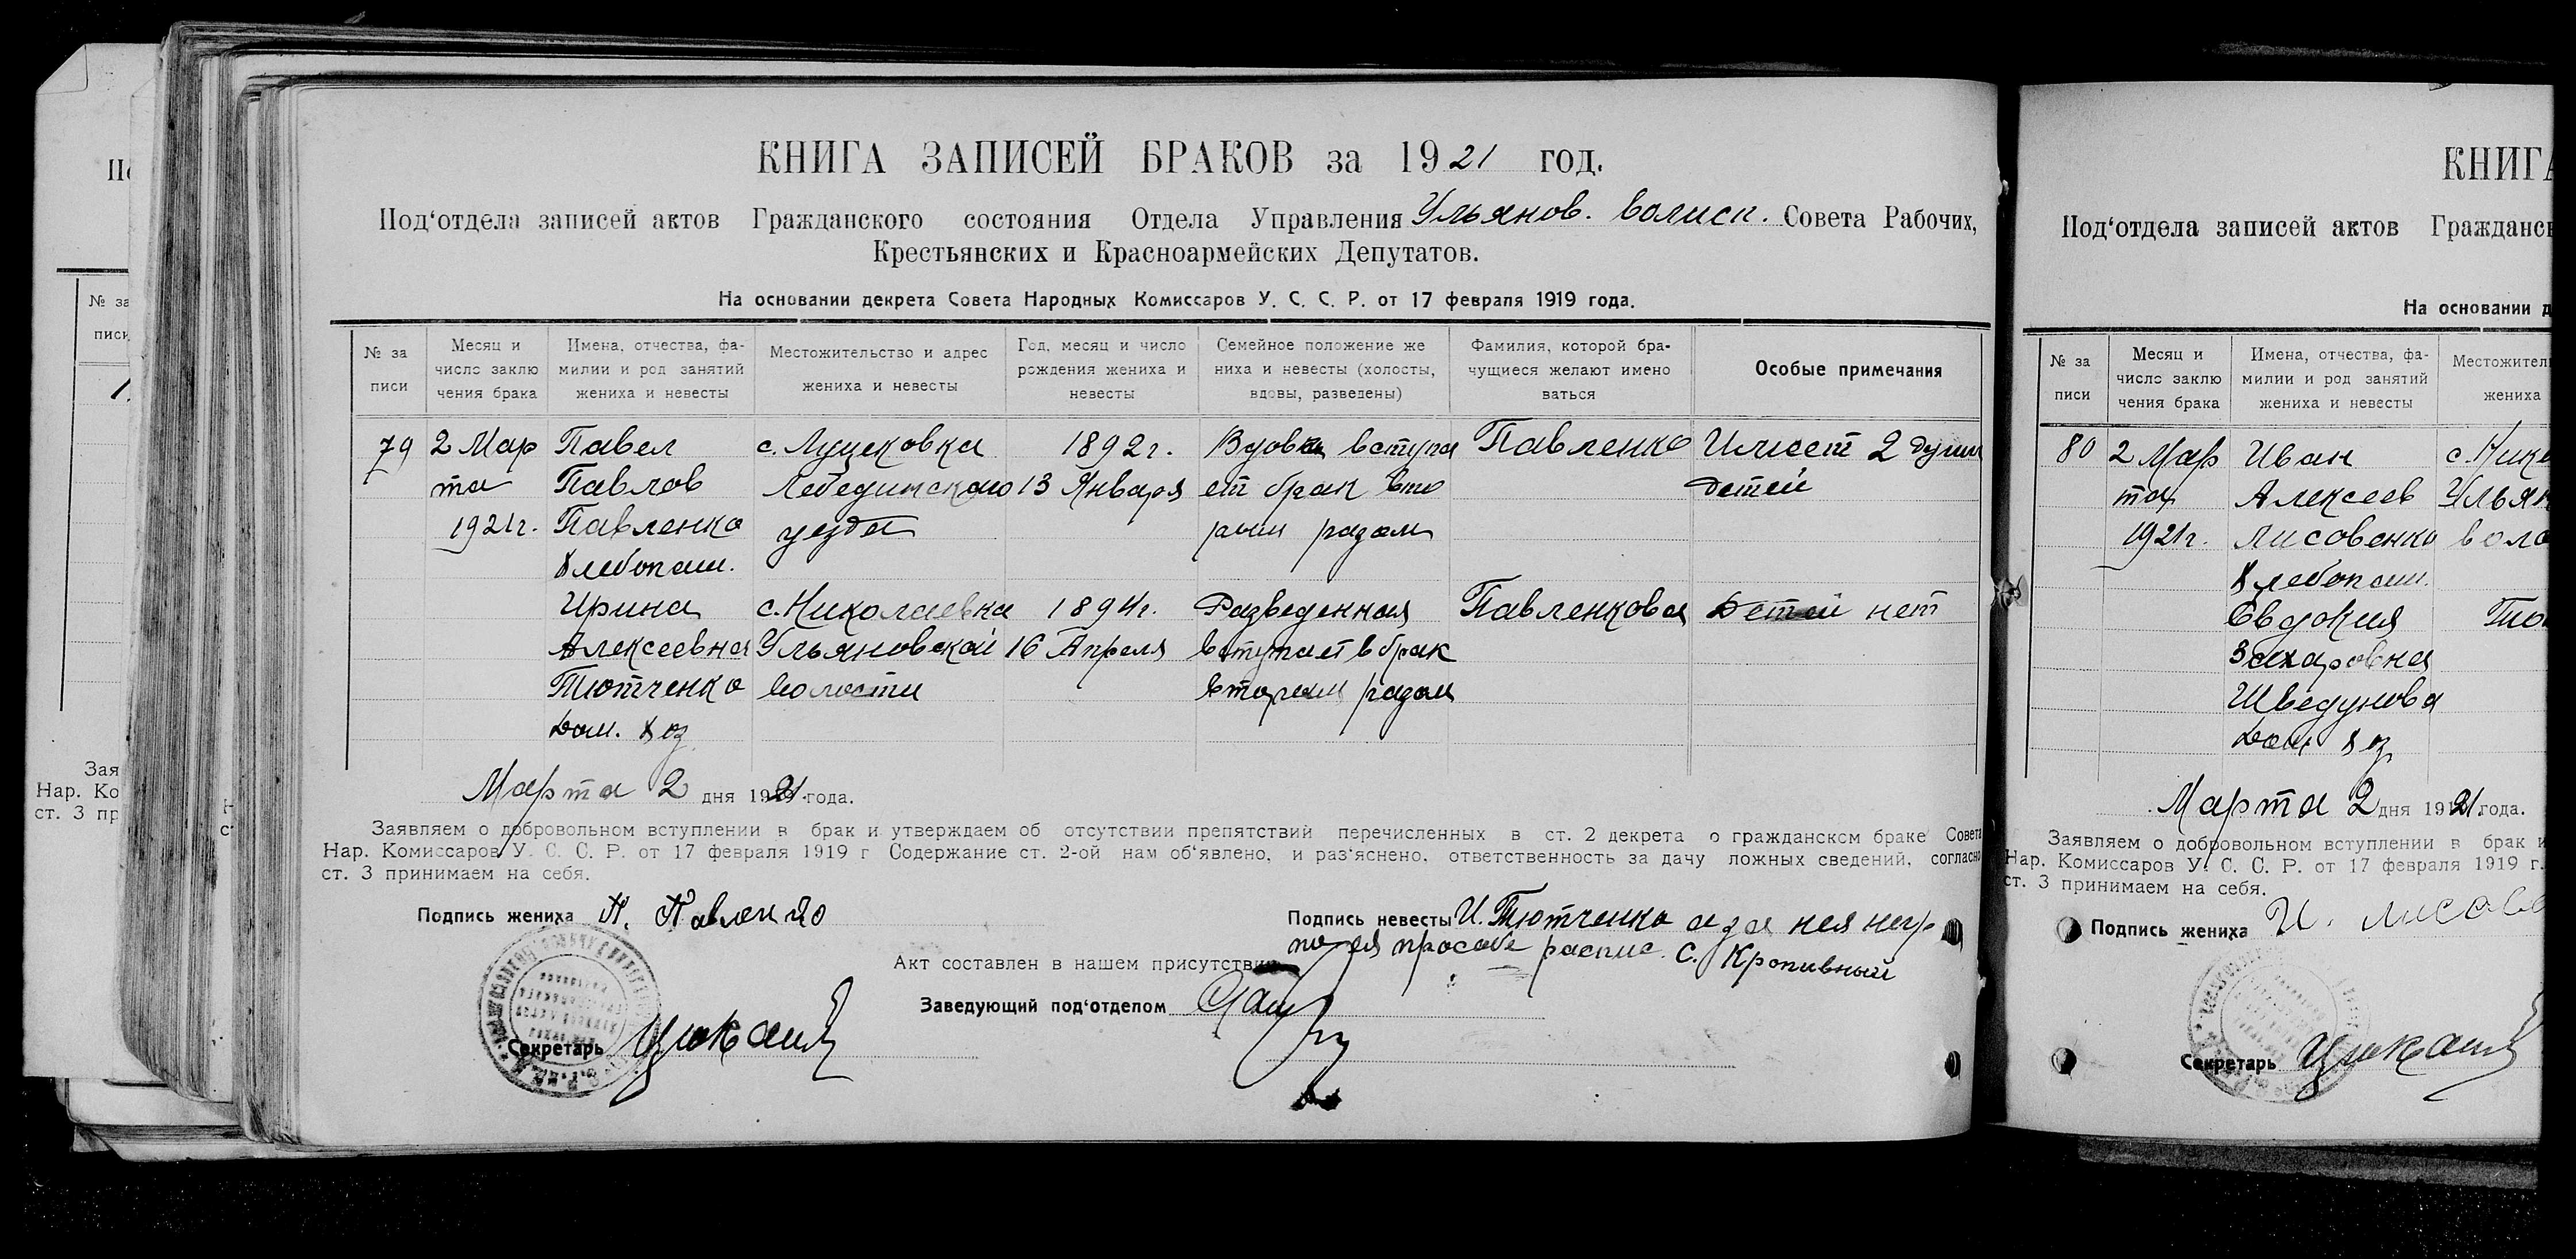 КНИГА ЗАПИСЕЙ БРАКОВ за 1921 год.
Под‘отдела записей актов Гражданского состояния Отдела Управления Ульянов. волисп. Совета Рабочих,
Крестьянских и Красноармейских Депутатов.
На основании декрета Совета Народных Комиссаров У. С. С. Р. от 17 февраля 1919 года.
№ за
писи
Месяц и
число заклю
чения брака
Имена, отчества, фа-
милии и род занятий
жениха и невесты
Местожительство и адрес
жениха и невесты
Год, месяц и число
рождения жениха и
невесты
Семейное положение же
ниха и невесты (холосты,
вдовы, разведены)
Фамилия, которой бра-
чущиеся желают имено
ваться
Особые примечания
79
2 Мар
та
1921г.
Павел
Павлов
Павленко
Хлебопаш.
с. Луцековка
Лебединского
уезда
1892г.
13 Января
Вдовец вступа
ет брак вто
рым разом
Павленко
Имеет 2 души
детей
Ирина
Алексеевна
Тютченко
Дом. хоз
с. Николаевка
Ульяновской
волости
1894г.
16 Апреля
Разведенная
вступает в брак
вторым разом
Павленкова
Детей нет
Марта 2 дня 1921 года.
Заявляем о добровольном вступлении в брак и утверждаем об отсутствии препятствий перечисленных в ст. 2 декрета о гражданском браке Совета
Нар. Комиссаров У. С. С. Р. от 17 февраля 1919 г Содержание ст. 2-ой нам об‘явлено, и раз‘яснено, ответственность за дачу ложных сведений, согласно
ст. 3 принимаем на себя.
Подпись жениха П. Павленко
Подпись невесты И. Тютченко а за нея негр
по ея просьбе распис. С. Кропивный
Акт составлен в нашем присутствии
Заведующий под‘отделом
Секретарь
КНИГА
Под‘отдела записей актов Гражданск
На основании д
№ за
писи
Месяц и
число заклю
чения брака
Имена, отчества, фа-
милии и род занятий
жениха и невесты
Местожитель
жениха
80
2 Мар
та
1921г.
Иван
Алексеев
Лисовенко
Хлебопаш.
с. Нико
Ульян
воло
Евдокия
Захаровна
Шведунова
Дом хоз
Марта 2 дня 1921 года.
Заявляем о добровольном вступлении в брак и
Нар. Комиссаров У. С. С. Р. от 17 февраля 1919 г.
ст. 3 принимаем на себя.
Подпись жениха И. Лисове
Секретарь
№ за
писи
Зая
Нар. Ко
ст. 3 пр